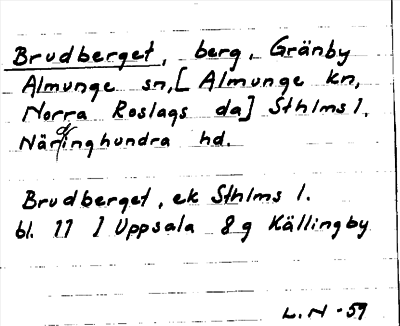 Brudberget, berg, Gränby
Almunge sn, [Almunge kn,
Norra Roslags da] Sthlms l,
Närdinghundra hd.
Brudberget, ek Sthlms l.
bl. 11 I Uppsala 8g Källingby
L.N -59